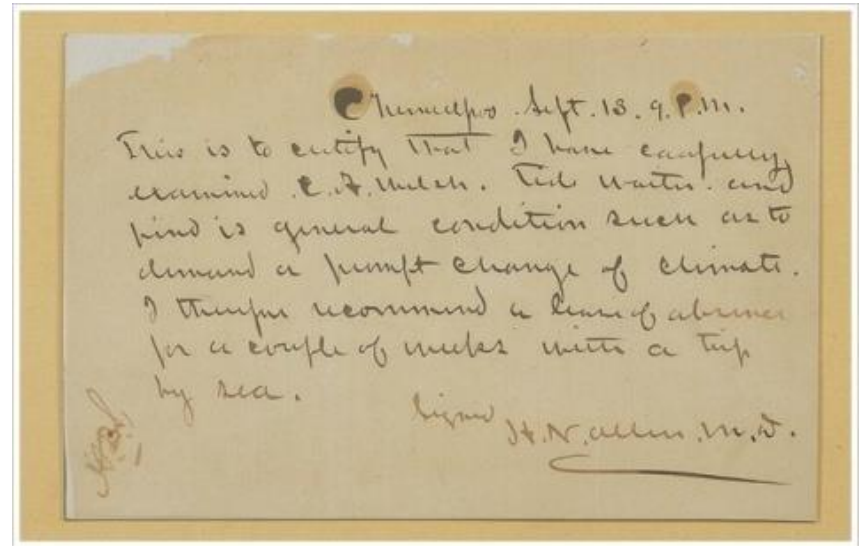 Chemulpo. Sept. 13. 9. P.M.
This is to certify that I have carefully
examined E. A. Welsh. Tide Waiter. and
find is general condition such as to
demand a prompt change of climate.
I therefore recommend a leave of absence
for a couple of weeks with a trip
by sea.
Signed H. N. Allen. M.D.